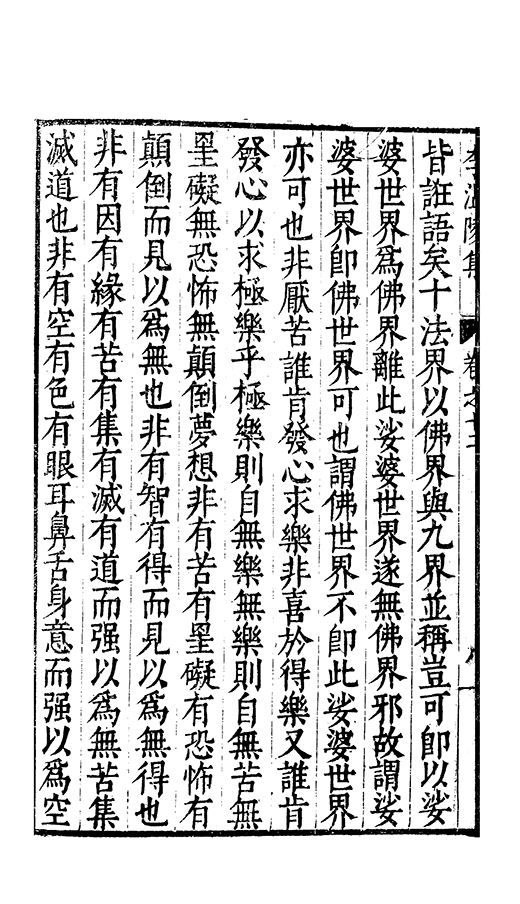 李溫陵集 卷之十二 八
皆誑語矣十法界以佛界與九界並稱豈可卽以娑
婆世界爲佛界離此娑婆世界遂無佛界邪故謂娑
婆世界卽佛世界可也謂佛世界不卽此娑婆世界
亦可也非厭苦誰肯發心求樂非喜於得樂又誰肯
發心以求極樂乎極樂則自無樂無樂則自無苦無
罣礙無恐怖無顛倒夢想非有苦有罣礙有恐怖有
顛倒而見以爲無也非有智有得而見以爲無得也
非有因有緣有苦有集有滅有道而强以爲無苦集
滅道也非有空有色有眼耳鼻舌身意而强以爲空